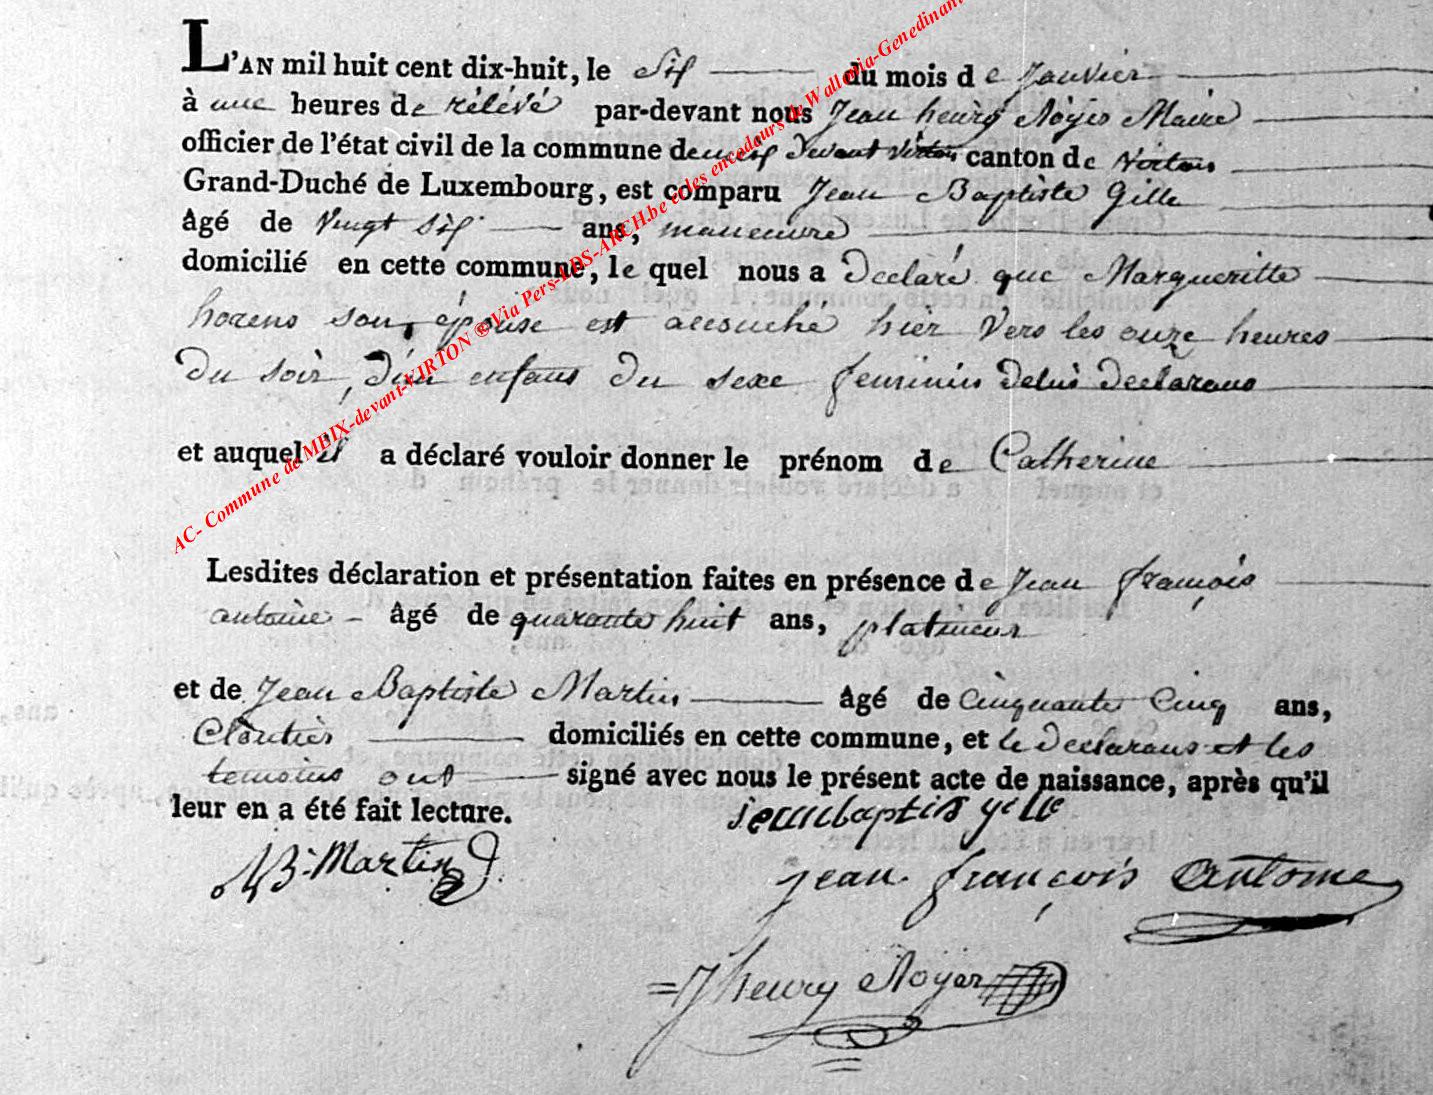 L'AN mil huit cent dix-huit, le Six du mois de Janvier
à une heures de rélévé par-devant nous Jean henry Noyer Maire
officier de l'état civil de la commune de meix devant Virton canton de Virton
Grand-Duché de Luxembourg, est comparu Jean Baptiste Gille
âgé de Vingt Six ans, maneuvre
domicilié en cette commune, le quel nous a Declaré que Margueritte
horens son épouse est accouché hièr Vers les onze heures
Du soir, d'un enfant Du sexe feminin Delui Declarans
et auquel il a déclaré vouloir donner le prénom de Catherine
Lesdites déclaration et présentation faites en présence de Jean françois
antoine âgé de quarante huit ans, platineur
et de Jean Baptiste Martin âgé de Cinquante Cinq ans,
Cloutier domiciliés en cette commune, et le Declarans et les
temoins ont signé avec nous le présent acte de naissance, après qu'il
leur en a été fait lecture.
jeanbaptis gille
JB. Martin
jean françois antoine
J henry Noyer
AC- Commune de MEIX-devant-VIRTON ® Via Pers-LDS-ARCH.be et les encodeurs de Wallonia-Genedinant